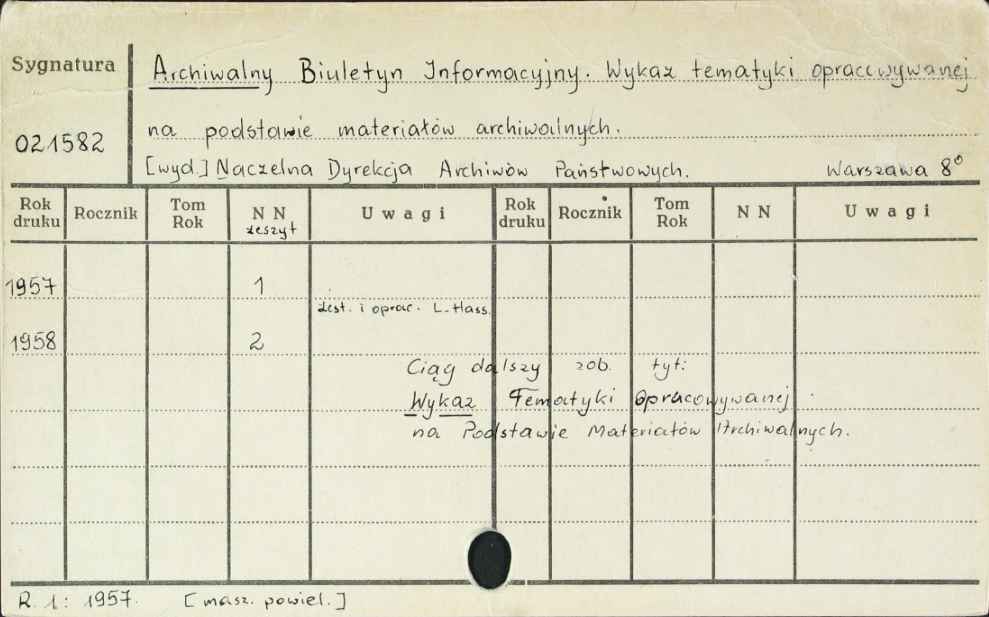 Sygnatura
Archiwalny Biuletyn Informacyjny. Wykaz tematyki opracowywanej
021582
na podstawie materiałów archiwalnych.
[wyd.] Naczelna Dyrekcja Archiwów Państwowych. Warszawa 8°
Rok druku Rocznik Tom Rok NN zeszyt Uwagi Rok druku Rocznik Tom Rok NN Uwagi
1957 1
zest. i oprac. L. Hass.
1958 2
Ciąg dalszy zob. tyt:
Wykaz Tematyki Opracowywanej
na Podstawie Materiałów Archiwalnych.
R. 1: 1957. [masz. powiel.]